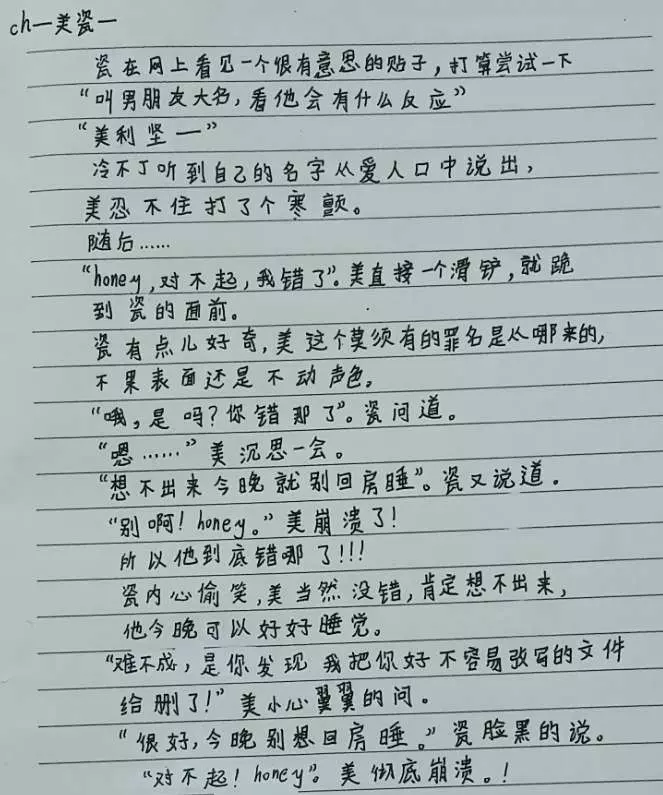 ch一美瓷一
瓷在网上看见一个很有意思的贴子，打算尝试一下
“叫男朋友大名，看他会有什么反应”
“美利坚一”
冷不丁听到自己的名字从爱人口中说出，
美忍不住打了个寒颤。
随后……
“honey，对不起，我错了”。美直接一个滑铲，就跪
到瓷的面前。
瓷有点儿好奇，美这个莫须有的罪名是从哪来的，
不果表面还是不动声色。
“哦，是吗？你错那了”。瓷问道。
“嗯……”美沉思一会。
“想不出来今晚就别回房睡”。瓷又说道．
“别啊！honey。”美崩溃了！
所以他到底错哪了！！！
瓷内心偷笑，美当然没错，肯定想不出来，
他今晚可以好好睡觉。
“难不成，是你发现我把你好不容易改写的文件
给删了！”美小心翼翼的问．
“很好，今晚别想回房睡。”瓷脸黑的说。
“对不起！honey”。美彻底崩溃。！